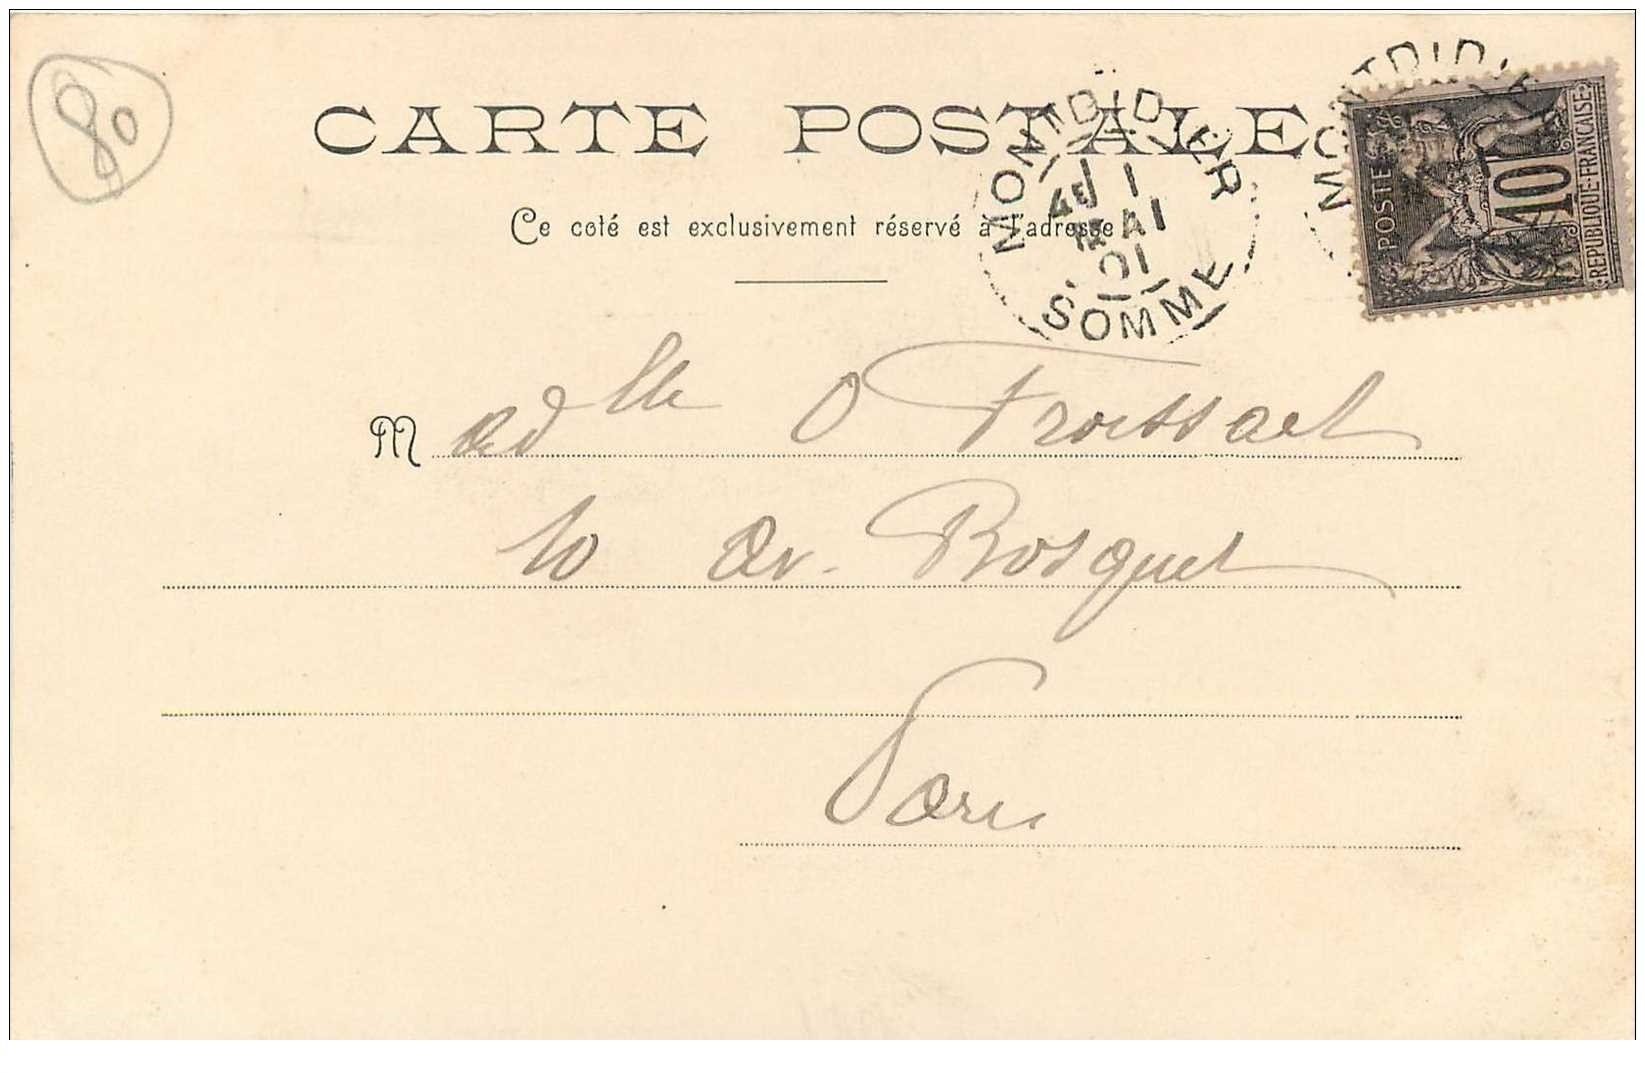 80
CARTE POSTALE
MONTDIDIER
MONTDIDIE
1
MAI
01
SOMME
POSTES
10
REPUBLIQUE FRANÇAISE
Ce coté est exclusivement réservé à l'adresse
Madlle O Froissart
10 av. Bosquet
Paris